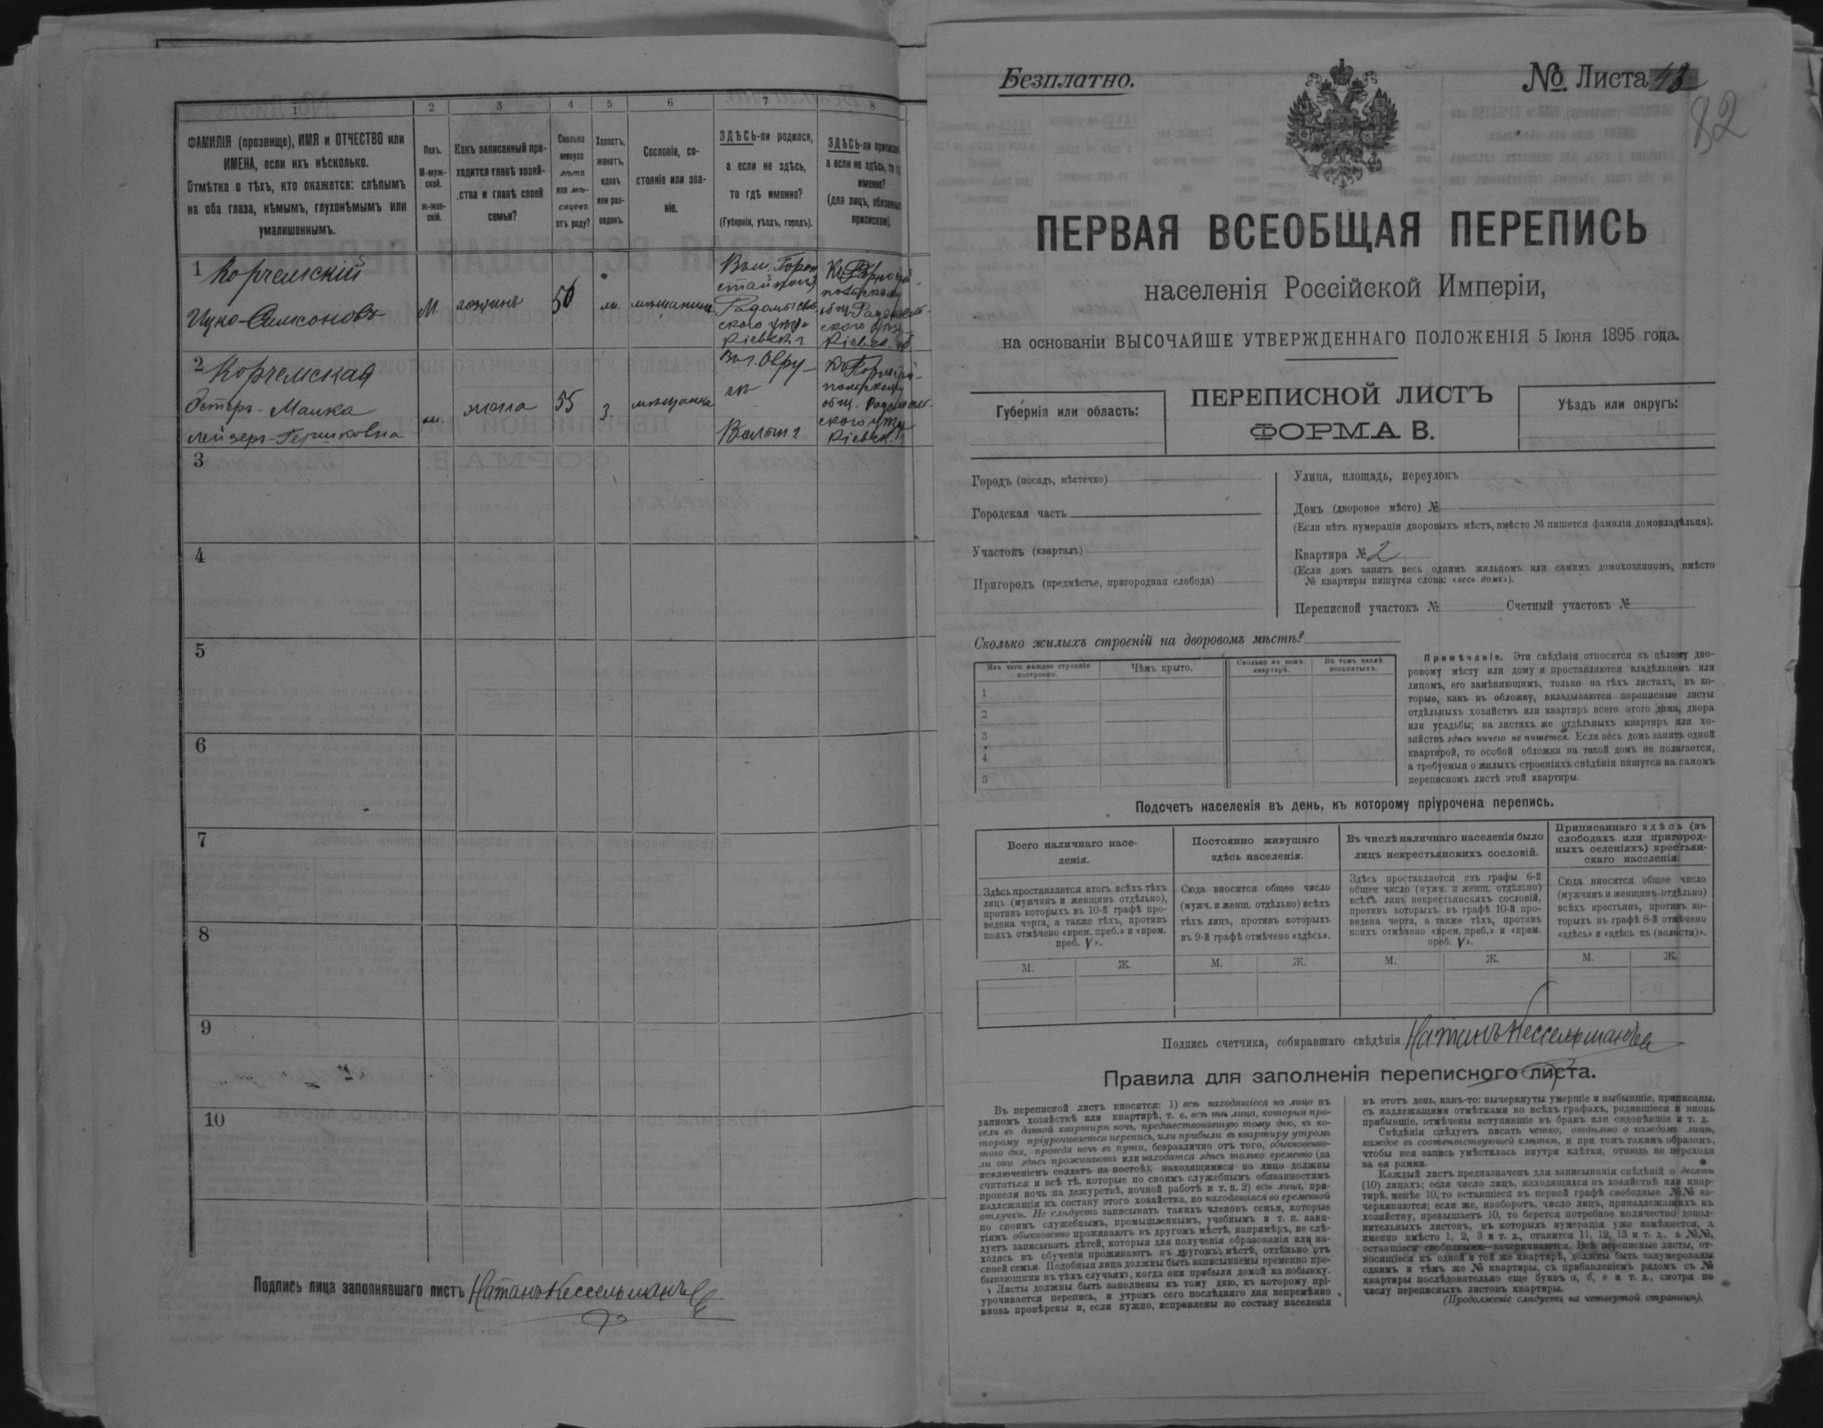 1
2
3
4
5
6
7
8
ФАМИЛІЯ (прозвище), ИМЯ и ОТЧЕСТВО или
ИМЕНА, если ихъ нѣсколько.
Отмѣтка о тѣхъ, кто окажется: слѣпымъ
на оба глаза, нѣмымъ, глухонѣмымъ или
умалишеннымъ.
Полъ.
М-муж-
ской.
ж-жен-
скій.
Какъ записанный при-
ходится главѣ хозяй-
ства и главѣ своей
семьи?
Сколько
минуло
лѣтъ
или мѣ-
сяцевъ
отъ роду?
Холостъ,
женатъ,
вдовъ
или раз-
веденъ.
Сословіе, со-
стояніе или зва-
ніе.
ЗДѢСЬ-ли родился,
а если не здѣсь,
то гдѣ именно?
(Губернія, уѣздъ, городъ).
ЗДѢСЬ-ли приписанъ,
а если не здѣсь, то гдѣ
именно?
(для лицъ, обязанныхъ
припиской).
1 Корчемскій
М.
50
Радомысль-
ского уѣзда
Кіевск. г
2 Корчемская
Эстеръ-Малка
Лейзеръ-Гершковна
жена
55
з.
мѣщанка
3
4
5
6
7
8
9
10
Подпись лица заполнявшаго листъ Натанъ Кессельманъ
Безплатно.
№ Листа 43
82
ПЕРВАЯ ВСЕОБЩАЯ ПЕРЕПИСЬ
населенія Россійской Имперіи,
на основаніи ВЫСОЧАЙШЕ УТВЕРЖДЕННАГО ПОЛОЖЕНІЯ 5 Іюня 1895 года.
Губернія или область:
ПЕРЕПИСНОЙ ЛИСТЪ
ФОРМА В.
Уѣздъ или округъ:
Городъ (посадъ, мѣстечко)
Городская часть
Участокъ (кварталъ)
Пригородъ (предмѣстье, пригородная слобода)
Улица, площадь, переулокъ
Домъ (дворовое мѣсто) №
(Если нѣтъ нумераціи дворовыхъ мѣстъ, вмѣсто № пишется фамилія домовладѣльца).
Квартира № 2
(Если домъ занятъ весь однимъ жильцомъ или самимъ домохозяиномъ, вмѣсто
№ квартиры пишутся слова: «весь домъ»).
Переписной участокъ № Счетный участокъ №
Сколько жилыхъ строеній на дворовомъ мѣстѣ?
Изъ чего каждое строеніе
построено.
Чѣмъ крыто.
Сколько въ немъ
квартиръ.
Въ томъ числѣ
незанятыхъ.
1
2
3
4
5
Примѣчаніе. Эти свѣдѣнія относятся къ цѣлому дво-
ровому мѣсту или дому и проставляются владѣльцемъ или
лицомъ, его замѣняющимъ, только на тѣхъ листахъ, въ ко-
торые, какъ въ обложку, вкладываются переписные листы
отдѣльныхъ хозяйствъ или квартиръ всего этого дома, двора
или усадьбы; на листахъ же отдѣльныхъ квартиръ или хо-
зяйствъ здѣсь ничего не пишется. Если весь домъ занятъ одной
квартирой, то особой обложки на такой домъ не полагается,
а требуемыя о жилыхъ строеніяхъ свѣдѣнія пишутся на самомъ
переписномъ листѣ этой квартиры.
Подсчетъ населенія въ день, къ которому пріурочена перепись.
Всего наличнаго насе-
ленія.
Постоянно живущаго
здѣсь населенія.
Въ числѣ наличнаго населенія было
лицъ некрестьянскихъ сословій.
Приписаннаго здѣсь (въ
слободахъ или пригород-
ныхъ селеніяхъ) крестьян-
скаго населенія.
Здѣсь проставляется итогъ всѣхъ тѣхъ
лицъ (мужчинъ и женщинъ отдѣльно),
противъ которыхъ въ 10-й графѣ про-
ведена черта, а также тѣхъ, противъ
коихъ отмѣчено «врем. преб.» и «врем.
преб. V».
Сюда вносится общее число
(мужч. и женщ. отдѣльно) всѣхъ
тѣхъ лицъ, противъ которыхъ
въ 9-й графѣ отмѣчено «здѣсь».
Здѣсь проставляется изъ графы 6-й
общее число (мужч. и женщ. отдѣльно)
всѣхъ лицъ некрестьянскихъ сословій,
противъ которыхъ въ графѣ 10-й про-
ведена черта, а также тѣхъ, противъ
коихъ отмѣчено «врем. преб.» и «врем.
преб. V».
Сюда вносится общее число
(мужчинъ и женщинъ отдѣльно)
всѣхъ крестьянъ, противъ ко-
торыхъ въ графѣ 8-й отмѣчено
«здѣсь» и «здѣсь къ (волости)».
М. Ж. М. Ж. М. Ж. М. Ж.
Подпись счетчика, собиравшаго свѣдѣнія Натанъ Кессельманъ
Правила для заполненія переписного листа.
Въ переписной листъ вносятся: 1) всѣ находящіеся на лицо въ
данномъ хозяйствѣ или квартирѣ, т. е. всѣ тѣ лица, которыя про-
вели въ данной квартирѣ ночь, предшествовавшую тому дню, къ ко-
торому пріурочивается перепись, или прибыли въ квартиру утромъ
того дня, проведя ночь въ пути, безразлично отъ того, обыкновенно-
ли они здѣсь проживаютъ или находятся здѣсь только временно (за
исключеніемъ солдатъ на постоѣ); находящимися на лицо должны
считаться и всѣ тѣ, которые по своимъ служебнымъ обязанностямъ
провели ночь на дежурствѣ, ночной работѣ и т. п. 2) всѣ лица, при-
надлежащія къ составу этого хозяйства, но находящіяся во временной
отлучкѣ. Не слѣдуетъ записывать такихъ членовъ семьи, которые
по своимъ служебнымъ, промышленнымъ, учебнымъ и т. п. заня-
тіямъ обыкновенно проживаютъ въ другомъ мѣстѣ, напримѣръ, не слѣ-
дуетъ записывать дѣтей, которыя для полученія образованія или на-
ходясь въ обученіи проживаютъ въ другомъ мѣстѣ, отдѣльно отъ
своей семьи. Подобныя лица должны быть записываемы временно пре-
бывающими въ тѣхъ случаяхъ, когда они прибыли домой на побывку.
Листы должны быть заполнены къ тому дню, къ которому прі-
урочивается перепись, и утромъ сего послѣдняго дня непремѣнно
вновь провѣрены и, если нужно, исправлены по составу населенія
въ этотъ день, какъ-то: вычеркнуты умершіе и выбывшіе, приписаны,
съ надлежащими отмѣтками во всѣхъ графахъ, родившіеся и вновь
прибывшіе, отмѣчены вступившіе въ бракъ или овдовѣвшіе и т. д.
Свѣдѣнія слѣдуетъ писать четко, отдѣльно о каждомъ лицѣ,
каждое въ соотвѣтствующей клѣткѣ, и при томъ такимъ образомъ,
чтобы вся запись умѣстилась внутри клѣтки, отнюдь не переходя
за ея рамки.
Каждый листъ предназначенъ для записыванія свѣдѣній о десяти
(10) лицахъ; если число лицъ, находящихся въ хозяйствѣ или квар-
тирѣ, менѣе 10, то оставшіеся въ первой графѣ свободные №№ за-
черкиваются; если же, наоборотъ, число лицъ, принадлежащихъ къ
хозяйству, превышаетъ 10, то берется потребное количество допол-
нительныхъ листовъ, въ которыхъ нумерація уже измѣняется, а
именно вмѣсто 1, 2, 3 и т. д., ставится 11, 12, 13 и т. д., а №№,
оставшіеся свободными—зачеркиваются. Всѣ переписные листы, от-
носящіеся къ одной и той же квартирѣ, должны быть занумерованы
однимъ и тѣмъ же № квартиры, съ прибавленіемъ рядомъ съ №
квартиры послѣдовательно еще буквъ а, б, в и т. д., смотря по
числу переписныхъ листовъ квартиры.
(Продолженіе слѣдуетъ на четвертой страницѣ).